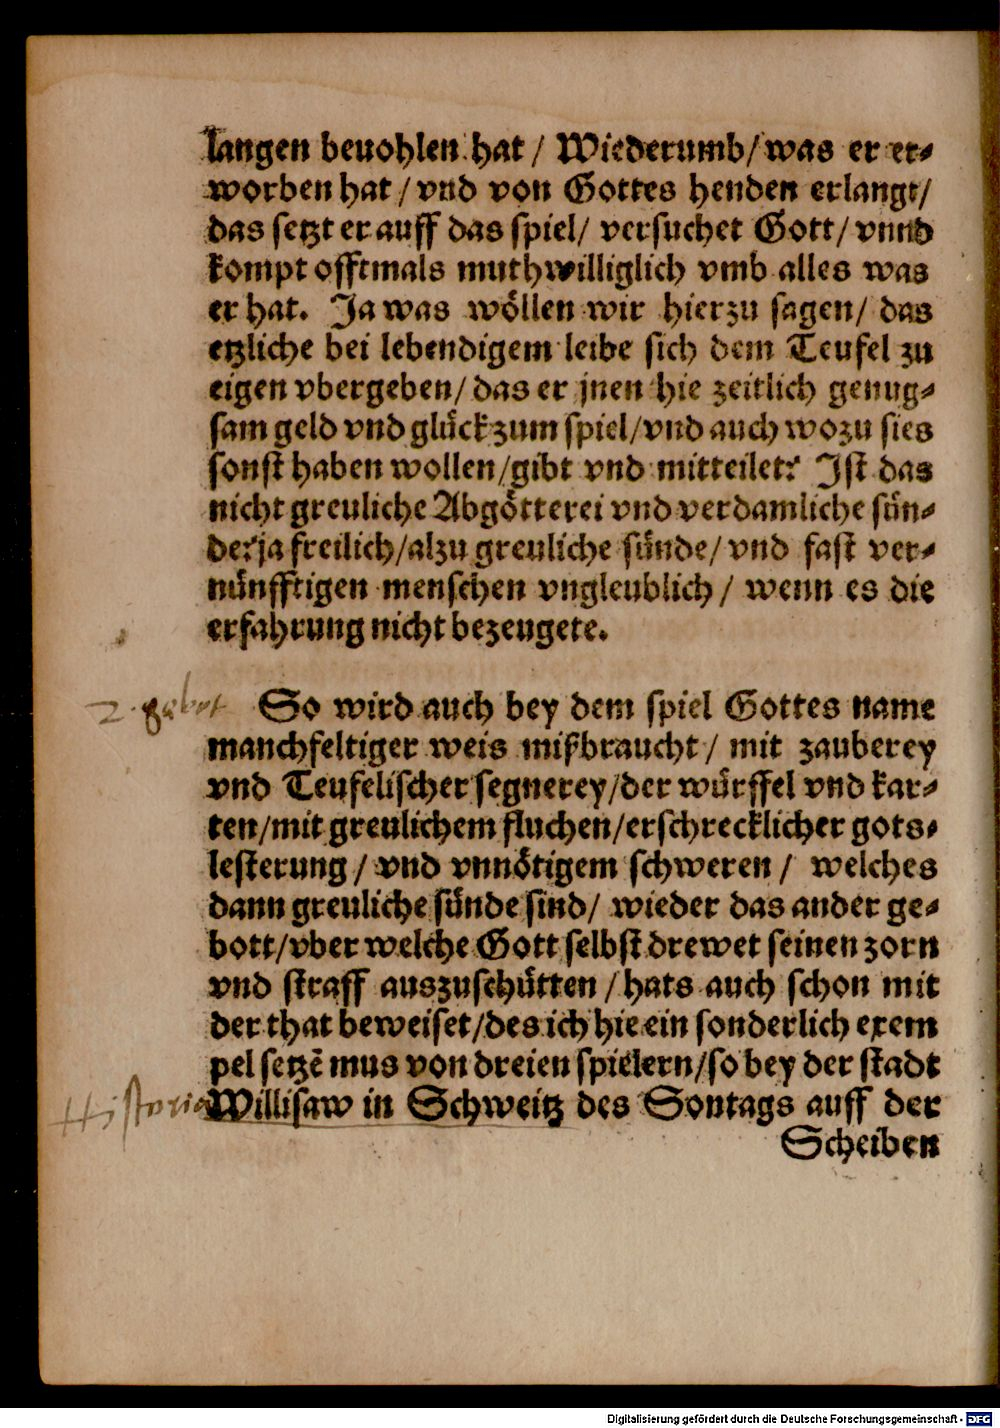 langen beuohlen hat / Wiederumb/ was er er⸗
worben hat / vnd von Gottes henden erlangt/
das setzt er auff das spiel/ versuchet Gott/ vnnd
kompt offtmals muthwilliglich vmb alles was
er hat. Ja was wöllen wir hierzu sagen/ das
etzliche bei lebendigem leibe sich dem Teufel zu
eigen vbergeben/ das er jnen hie zeitlich genug⸗
sam geld vnd glück zum spiel/vnd auch wozu sies
sonst haben wollen/gibt vnd mitteilet? Ist das
nicht greuliche Abgötterei vnd verdamliche sün⸗
de?ja freilich/alzu greuliche sünde/ vnd fast ver⸗
nünfftigen menschen vngleublich / wenn es die
erfahrung nicht bezeugete.
2. gebot
So wird auch bey dem spiel Gottes name
manchfeltiger weis mißbraucht / mit zauberey
vnd Teufelischer segnerey/der würffel vnd kar⸗
ten/mit greulichem fluchen/erschrecklicher gots⸗
lesterung / vnd vnnötigem schweren / welches
dann greuliche sünde sind/ wieder das ander ge⸗
bott/vber welche Gott selbst drewet seinen zorn
vnd straff auszuschütten / hats auch schon mit
der that beweiset/des ich hie ein sonderlich exem
pel setzē mus von dreien spielern/so bey der stadt
Historia
Willisaw in Schweitz des Sontags auff der
Scheiben
Digitalisierung gefördert durch die Deutsche Forschungsgemeinschaft - DFG